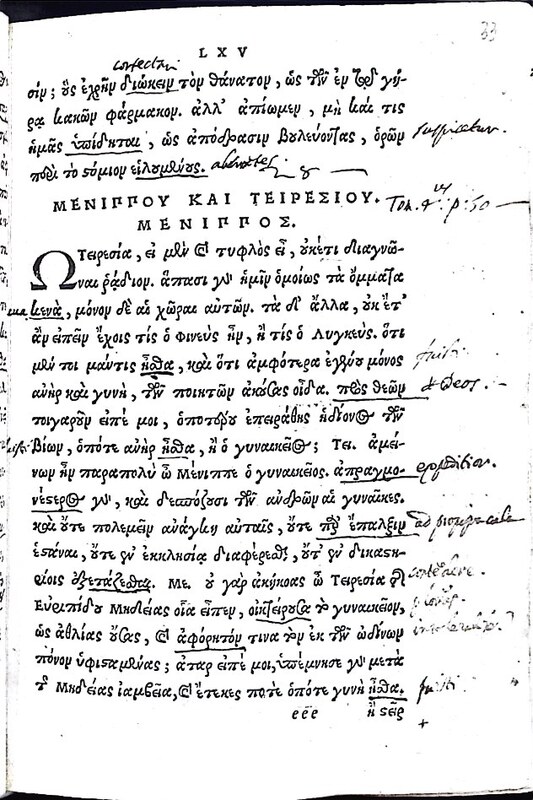 LXV
σίν; οὓς ἐχρῆν διώκειν τὸν θάνατον, ὡς τῶν ἐν τῷ γή-
ρᾳ κακῶν φάρμακον. ἀλλ' ἀπίωμεν, μὴ καί τις
ἡμᾶς ὑπίδηται, ὡς ἀπόδρασιν βουλεύοντας, ὁρῶν
περὶ τὸ στόμιον εἱλουμένους.
ΜΕΝΙΠΠΟΥ ΚΑΙ ΤΕΙΡΕΣΙΟΥ.
ΜΕΝΙΠΠΟΣ.
Ὦ Τειρεσία, εἰ μὲν καὶ τυφλὸς εἶ, οὐκέτι διαγνῶ-
ναι ῥᾴδιον. ἅπασι γὰρ ἡμῖν ὁμοίως τὰ ὄμματα
κενὰ, μόνον δὲ αἱ χῶραι αὐτῶν. τὰ δ' ἄλλα, οὐκ ἔτ'
ἂν εἰπεῖν ἔχοις τίς ὁ Φινεὺς ἦν, ἢ τίς ὁ Λυγκεύς. ὅτι
μέν τοι μάντις ἦσθα, καὶ ὅτι ἀμφότερα ἐγένου μόνος
ἀνὴρ καὶ γυνὴ, τῶν ποιητῶν ἀκούσας οἶδα. πρὸς θεῶν
τοιγαροῦν εἰπέ μοι, ὁποτέρου ἐπειράθης ἡδίονος τῶν
βίων, ὁπότε ἀνὴρ ἦσθα, ἢ ὁ γυναικεῖος; Τει. ἀμεί-
νων ἦν παραπολὺ ὦ Μένιππε ὁ γυναικεῖος. ἀπραγμο-
νέστερος γὰρ, καὶ δεσπόζουσι τῶν ἀνδρῶν αἱ γυναῖκες.
καὶ οὔτε πολεμεῖν ἀνάγκη αὐταῖς, οὔτε παρ' ἔπαλξιν
ἑστάναι, οὔτε ἐν ἐκκλησίᾳ διαφέρεσθαι, οὔτ' ἐν δικαστη-
ρίοις ἐξετάζεσθαι. Με. οὐ γὰρ ἀκήκοας ὦ Τειρεσία τῆς
Εὐριπίδου Μηδείας οἷα εἶπεν, οἰκτείρουσα τὸ γυναικεῖον,
ὡς ἀθλίας οὔσας, καὶ ἀφόρητόν τινα τὸν ἐκ τῶν ὠδίνων
πόνον ὑφισταμένας; ἀτὰρ εἰπέ μοι, ὑπέμνησε γάρ με τὰ
τῆς Μηδείας ἰαμβεῖα, καὶ ἔτεκες ποτὲ ὁπότε γυνὴ ἦσθα.
eëë ἢ στεῖρ